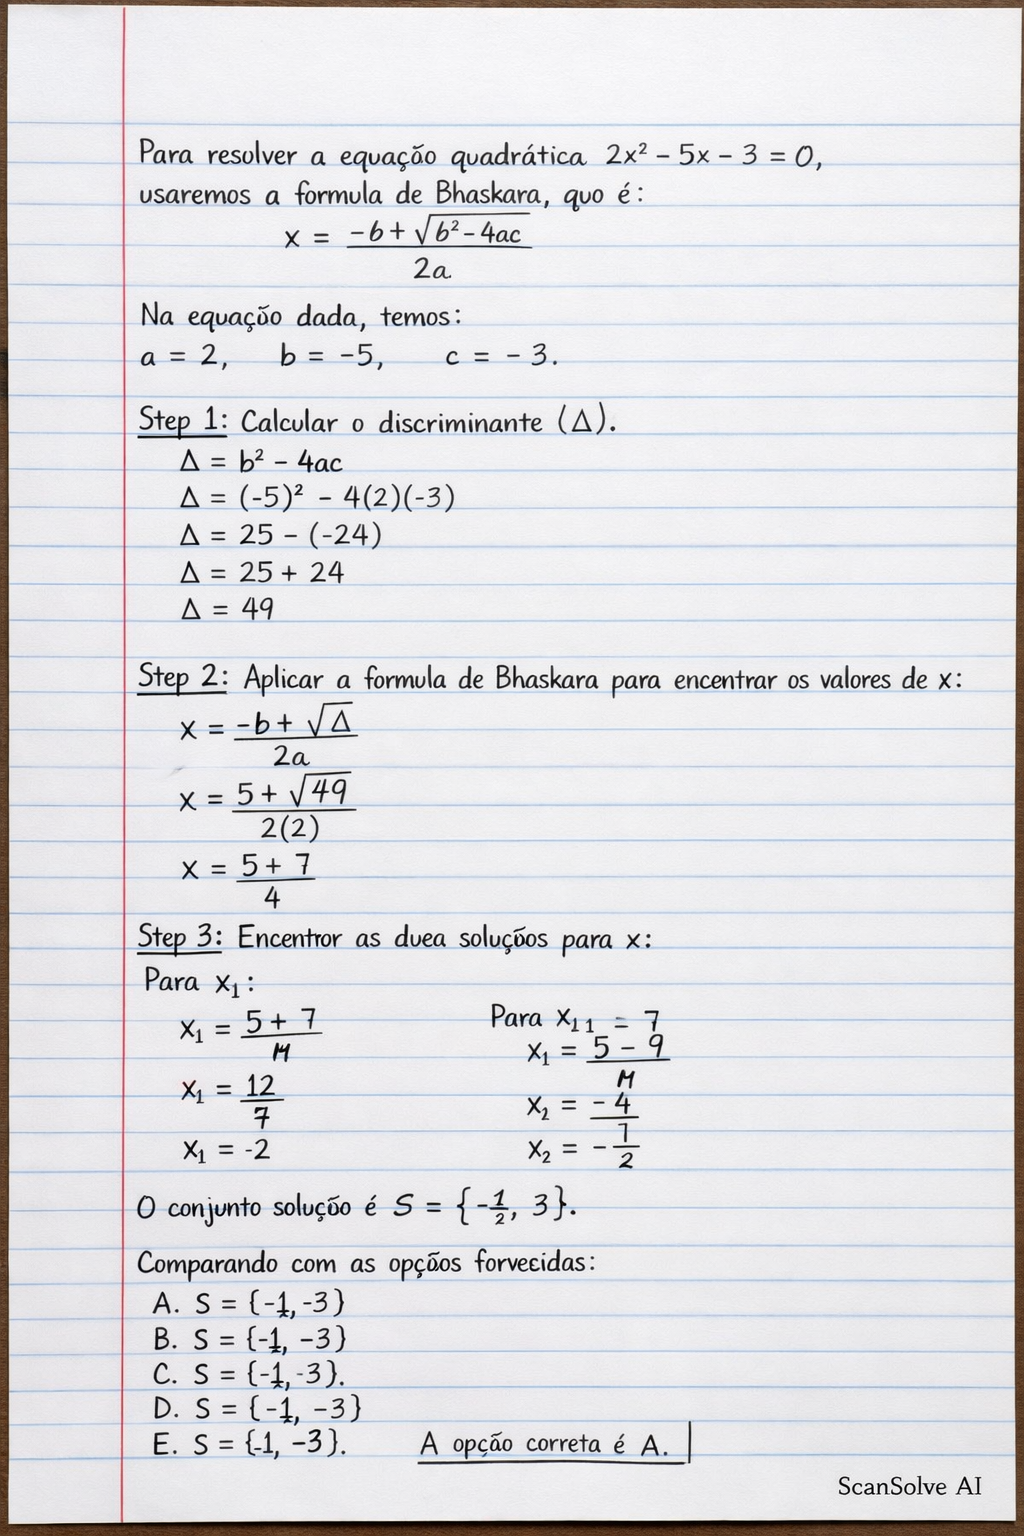 Para resolver a equação quadrática 2x² – 5x – 3 = 0,
usaremos a formula de Bhaskara, quo é:
x = (-b + √(b² - 4ac)) / 2a
Na equação dada, temos:
a = 2, b = -5, c = - 3.
Step 1: Calcular o discriminante (Δ).
Δ = b² – 4ac
Δ = (-5)² – 4(2)(-3)
Δ = 25 – (-24)
Δ = 25 + 24
Δ = 49
Step 2: Aplicar a formula de Bhaskara para encentrar os valores de x:
x = (-b + √Δ) / 2a
x = (5 + √49) / 2(2)
x = (5 + 7) / 4
Step 3: Encentror as duea soluções para x:
Para x₁:
x₁ = (5 + 7) /
x₁ = 12 / 7
x₁ = -2
Para x₁₁ = 7
x₁ = (5 – 9) /
x₂ = - 4 / 1
x₂ = - 1/2
O conjunto solução é S = {-1/2, 3}.
Comparando com as opções forvecidas:
A. S = {-1, -3}
B. S = {-1, -3}
C. S = {-1, -3}.
D. S = {-1, -3}
E. S = {-1, -3}.
A opção correta é A.
ScanSolve AI